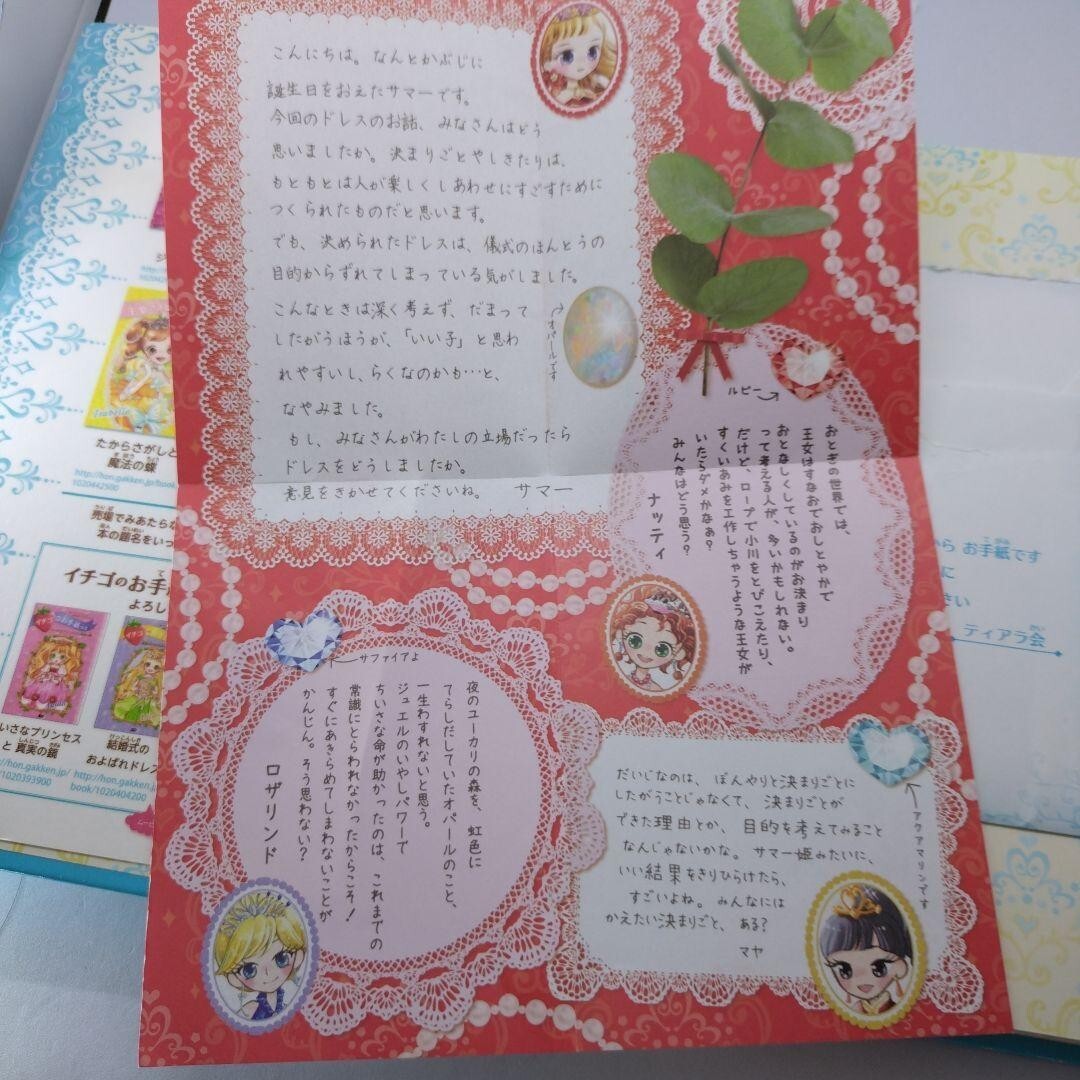 こんにちは。なんとかぶじに
誕生日をおえたサマーです。
今回のドレスのお話、みなさんはどう
思いましたか。決まりごとやしきたりは、
もともとは人が楽しくしあわせにすごすために
つくられたものだと思います。
でも、決められたドレスは、儀式のほんとうの
目的からずれてしまっている気がしました。
こんなときは深く考えず、だまって
したがうほうが、「いい子」と思わ
れやすいし、らくなのかも…と、
なやみました。
もし、みなさんがわたしの立場だったら
ドレスをどうしましたか。
意見をきかせてくださいね。 サマー
オパールです
ルビー
おとぎの世界では、
王女はすなおでおしとやかで
おとなしくしているのがお決まり
って考える人が、多いかもしれない。
だけど、ロープで小川をとびこえたり、
すくいあみを工作しちゃうような王女が
いたらダメかなぁ?
みんなはどう思う?
ナッティ
サファイアよ
夜のユーカリの森を、虹色に
てらしだしていたオパールのこと、
一生わすれないと思う。
ジュエルのいやしパワーで
ちいさな命が助かったのは、これまでの
常識にとらわれなかったからこそ!
すぐにあきらめてしまわないことが
かんじん。そう思わない?
ロザリンド
アクアマリンです
だいじなのは、ぼんやりと決まりごとに
したがうことじゃなくて、決まりごとが
できた理由とか、目的を考えてみること
なんじゃないかな。サマー姫みたいに、
いい結果をきりひらけたら、
すごいよね。みんなには
かえたい決まりごと、ある?
マヤ
Isabelle
たからさがしと
魔法の蝶
http://hon.gakken.jp/book/
1020442500
売場でみあたらな
本の題名をいっ
イチゴのお手
よろし
いさなプリンセス
と 真実の鏡
http://hon.gakken.jp/
1020393900
結婚式の
およばれドレス
hon.gakken.jp/
book/1020404200
から お手紙です
に
さい
ティアラ会